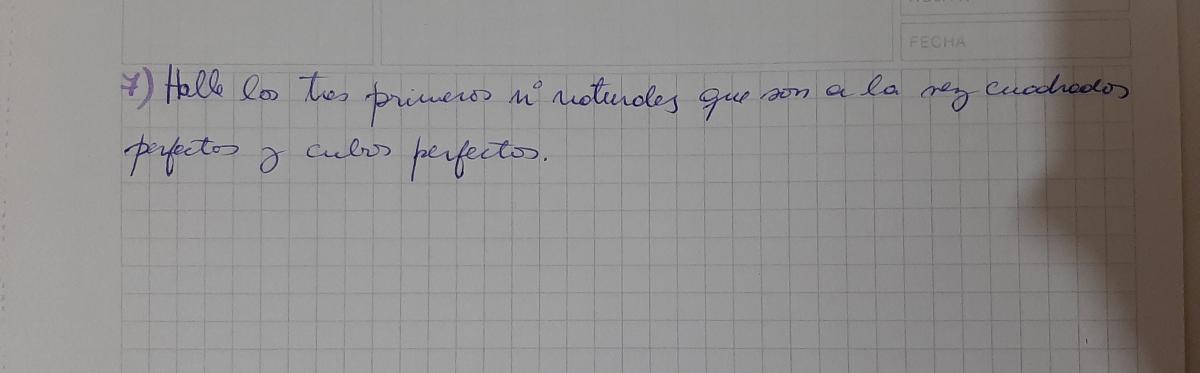 FECHA
7) Halle los tres primeros nº naturales que son a la vez cuadrados
perfectos y cubos perfectos.